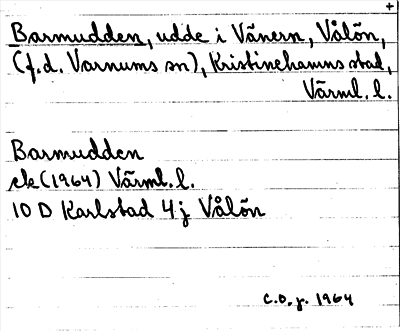 +
Barmudden, udde i Vänern, Vålön,
(f.d. Varnums sn), Kristinehamns stad,
Värml. l.
Barmudden
ek (1964) Värml. l.
10 D Karlstad 4 j Vålön
C.O. j. 1964